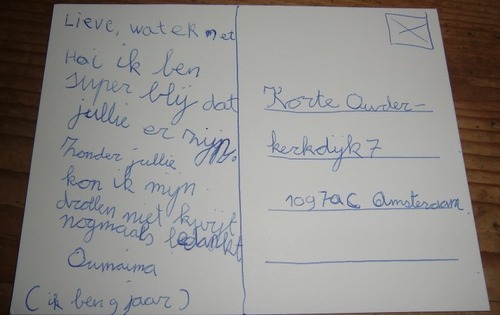 Lieve, waternet
Hoi ik ben
super blij dat
jullie er zijn.
Zonder jullie
kon ik mijn
drollen niet kwijt
nogmaals bedankt
Oumaima
(ik ben 9 jaar)
Korte Ouder-
kerkdijk 7
1097ac Amsterdam